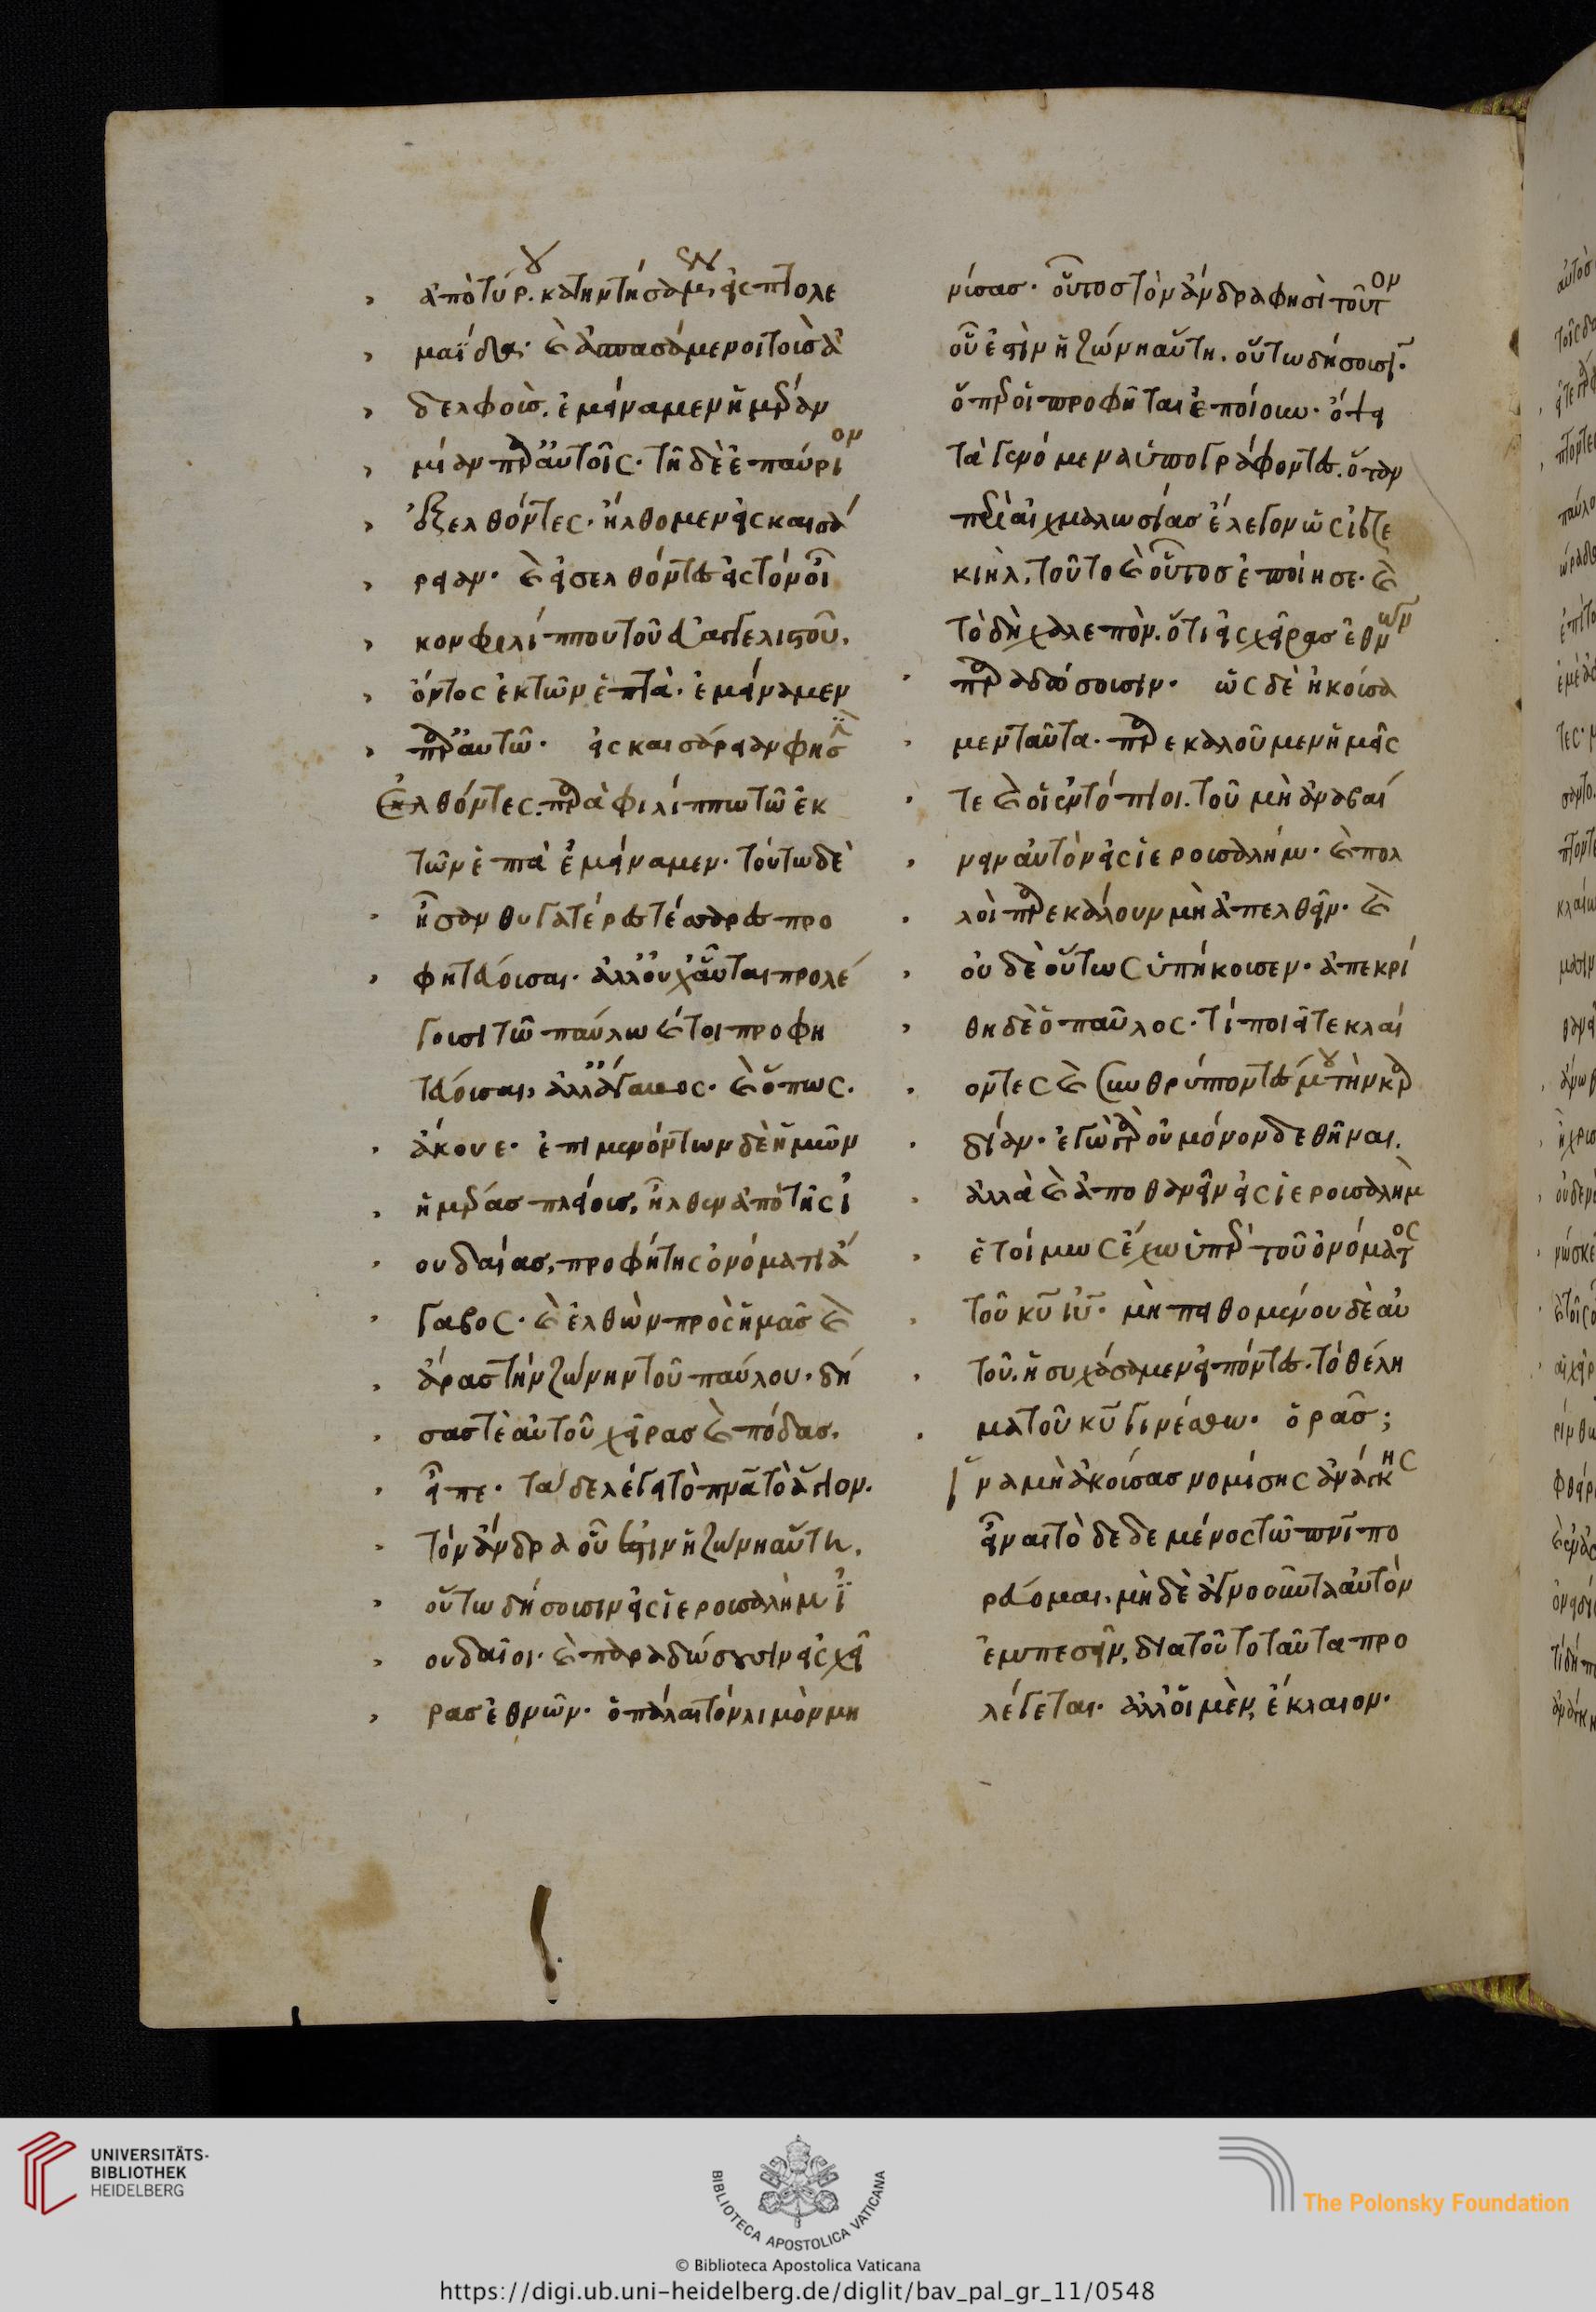 ἀπὸ τύρου κατηντήσαμεν εἰς πτολε
μαΐδα· καὶ ἀσπασάμενοι τοὺς ἀ
δελφοὺς, ἐμείναμεν ἡμέραν
μίαν παρ αὐτοῖς· τῆ δὲ ἐπαύριον
ἐξελθόντες· ἤλθομεν εἰς καισά
ρειαν· καὶ εἰσελθόντες εἰς τὸν οἶ
κον φιλίππου τοῦ εὐαγγελιστοῦ,
ὄντος ἐκ τῶν ἑπτὰ· ἐμείναμεν
παρ αὐτῶ· εἰς καισάρειαν φησὶν
ἐλθόντες. παρὰ φιλίππω τῶ ἐκ
τῶν ἑπτὰ ἐμείναμεν· τούτω δὲ
ἦσαν θυγατέρες τέσσαρες προ
φητεύουσαι· ἀλλ οὐχ αὗται προλέ
γουσι τῶ παύλω καίτοι προφη
τεύουσαι, ἀλλ ἄγαβος· καὶ ὅπως.
ἄκουε· ἐπιμενόντων δὲ ἡμῶν
ἡμέρας πλείους, ἦλθεν ἀπὸ τῆς ἰ
ουδαίας, προφήτης ὀνόματι ἄ
γαβος· καὶ ἐλθὼν πρὸς ἡμᾶς καὶ
ἄρας τὴν ζώνην τοῦ παύλου· δή
σας τὲ αὐτοῦ χεῖρας καὶ πόδας,
εἶπε· τάδε λέγει τὸ πνᾶ τὸ ἅγιον.
τὸν ἄνδρα οὗ ἐστιν ἡ ζώνη αὕτη,
οὕτω δήσουσιν εἰς ἱερουσαλὴμ ἰ
ουδαῖοι· καὶ παραδώσουσιν εἰς χεῖ
ρας ἐθνῶν· ὁ πάλαι τὸν λιμὸν μη
νύσας· οὗτος τὸν ἄνδρα φησὶ τοῦτον
οὗ ἐστὶν ἡ ζώνη αὕτη, οὕτω δήσουσιν·
ὅπερ οἱ προφῆται ἐποίουν· ὅτε
τὰ γενόμενα ὑπογράφοντες. ὅταν
περὶ αἰχμαλωσίας ἔλεγον ὡς ἰεζε
κιὴλ, τοῦτο καὶ οὗτος ἐποίησε· καὶ
τὸ δὴ χαλεπὸν. ὅτι εἰς χεῖρας ἐθνῶν
παραδώσουσιν· ὡς δὲ ἠκούσα
μεν ταῦτα· παρεκαλοῦμεν ἡμεῖς
τε καὶ οἱ ἐντόπιοι. τοῦ μὴ ἀναβαί
νειν αὐτὸν εἰς ἱερουσαλήμ· καὶ πολ
λοὶ παρεκάλουν μὴ ἀπελθεῖν· καὶ
οὐδὲ οὕτως ὑπήκουσεν· ἀπεκρί
θη δὲ ὁ παῦλος· τί ποιεῖτε κλαί
οντες καὶ συνθρύπτοντές μου τὴν καρ
δίαν· ἐγὼ γὰρ οὐ μόνον δεθῆναι.
ἀλλὰ καὶ ἀποθανεῖν εἰς ἱερουσαλὴμ
ἑτοίμως ἔχω ὑπὲρ τοῦ ὀνόματος
τοῦ κυ ιυ· μὴ πειθομένου δὲ αὐ
τοῦ. ἡσυχάσαμεν εἰπόντες· τὸ θέλη
μα τοῦ κυ γινέσθω· ὁρᾶς;
ἵνα μὴ ἀκούσας νομίσης ἀνάγκης
εἶναι τὸ δεδεμένος τῶ πνι πο
ρεύομαι, μὴ δὲ ἀγνοοῦντα αὐτὸν
ἐμπεσεῖν, διατοῦτο ταῦτα προ
λέγεται· ἀλλ οἱ μὲν, ἔκλαιον·
UNIVERSITÄTS-
BIBLIOTHEK
HEIDELBERG
BIBLIOTECA APOSTOLICA VATICANA
© Biblioteca Apostolica Vaticana
The Polonsky Foundation
https://digi.ub.uni-heidelberg.de/diglit/bav_pal_gr_11/0548